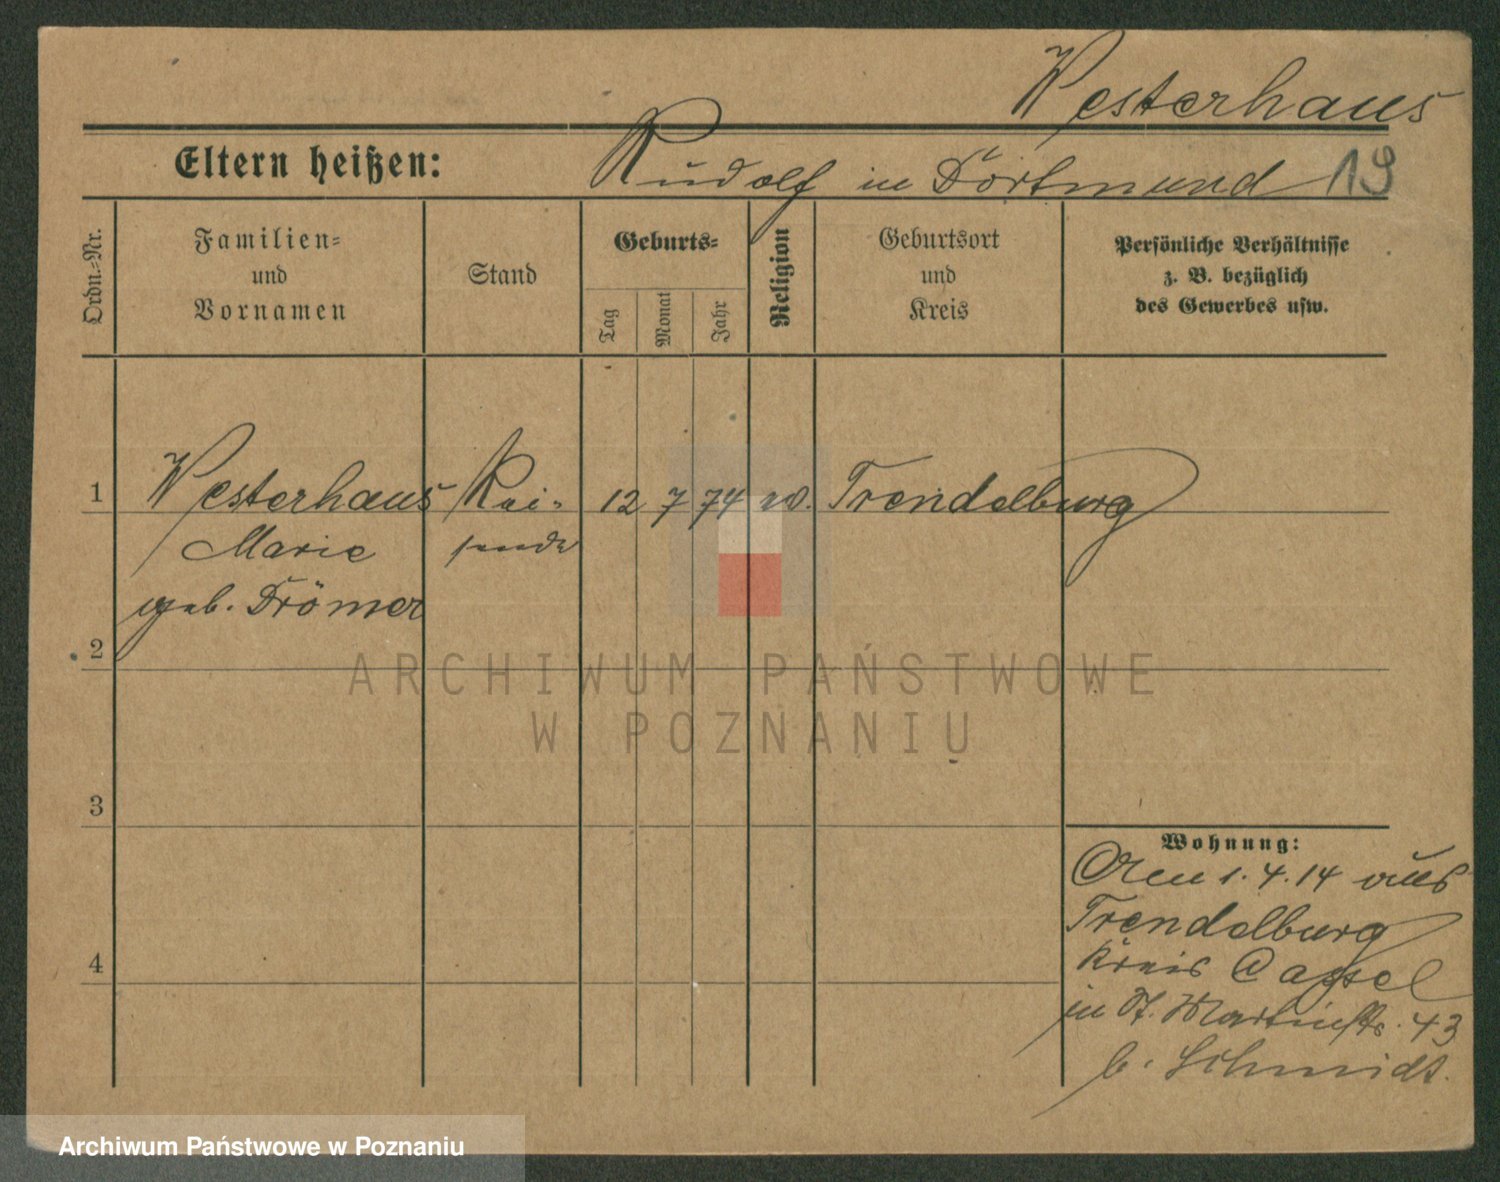 Westerhaus
Eltern heißen: Rudolf in Dortmund 19
Ordn.-Nr.
Familien-
und
Vornamen
Stand
Geburts-
Tag
Monat
Jahr
Religion
Geburtsort
und
Kreis
Persönliche Verhältnisse
z. B. bezüglich
des Gewerbes usw.
1 Westerhaus Rei- 12 7 74 Trendelburg
Marie sende
geb. Drömer
2
ARCHIWUM PAŃSTWOWE
W POZNANIU
3
Wohnung:
1.4.14 aus
Trendelburg
Kreis Cassel
4
in St. Martinstr. 43
b. Schmidt.
Archiwum Państwowe w Poznaniu